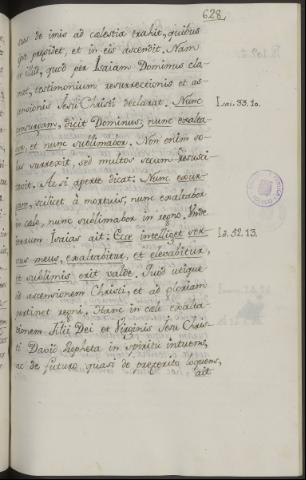 628
eas de imis ad cælestia trahit, quibus
ipse præsidet, et in eis ascendit. Nam
et illud, quod per Isaiam Dominus cla-
mat, testimonium resurrectionis et as-
censionis Jesu Christi declarat. Nunc
consurgam, dicit Dominus, nunc exalta-
bor, et nunc sublimabor. Non enim so-
lus surrexit, sed multos secum resusci-
tavit. Ac si aperte dicat: Nunc consur-
gam, scilicet à mortuis, nunc exaltabor
in cælo, nunc sublimabor in regno. Unde
iterum Isaias ait: Ecce intelliget ser-
vus meus, exaltabitur, et elevabitur,
et sublimis erit valde. Quid utique
ad ascensionem Christi, et ad gloriam
pertinet regni. Hanc in cælo exalta-
tionem Filii Dei et Virginis Jesu Chris-
ti David Propheta in spiritu intuens,
ac de futuro quasi de præterito loquens,
ait
Isai. 33. 10.
Is. 52. 13.